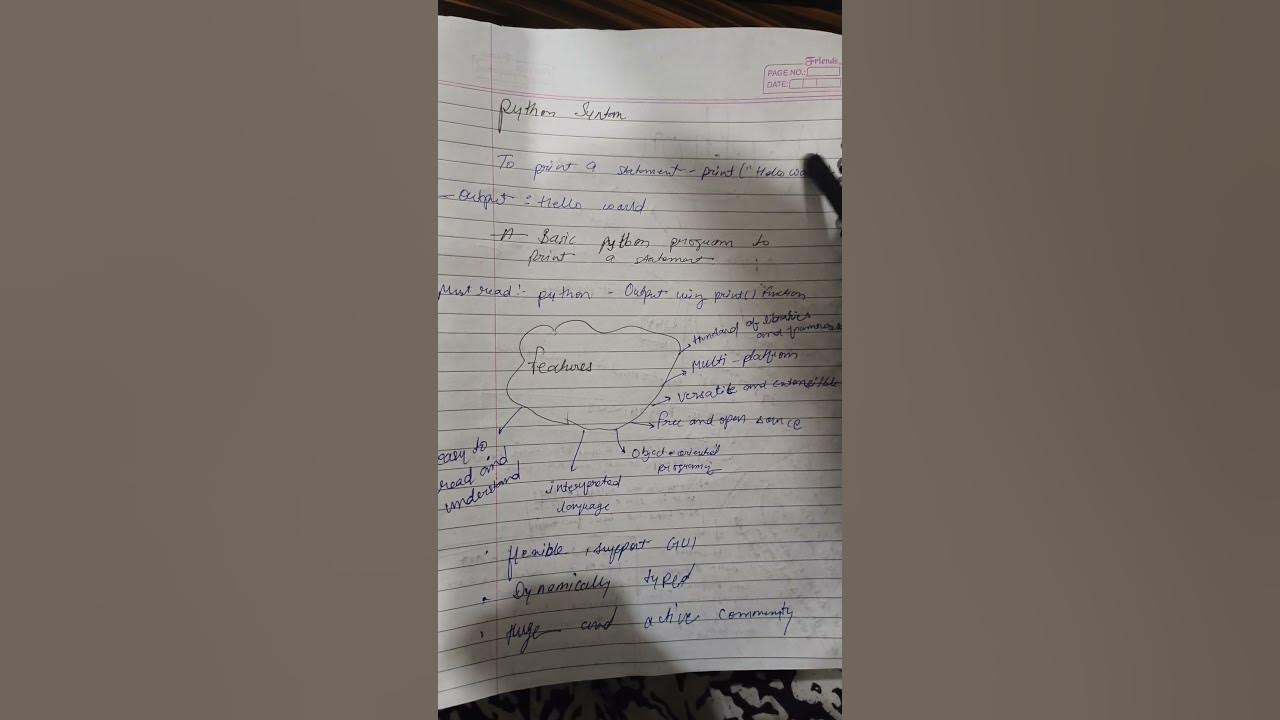 Friends
PAGE NO.:
DATE:
Python Syntax
To print a statement - print ("Hello wo
- Output : Hello world
A Basic python program to
print a statement
Must read :- python - Output using print() function
Hundard of libraries
and framewor
features
Multi - platform
versatile and extensible
free and open source
Object - oriented
programing
easy to
read and
understand
interpreted
language
• flexible , support GUI
• Dynamically typed
• Huge and active community